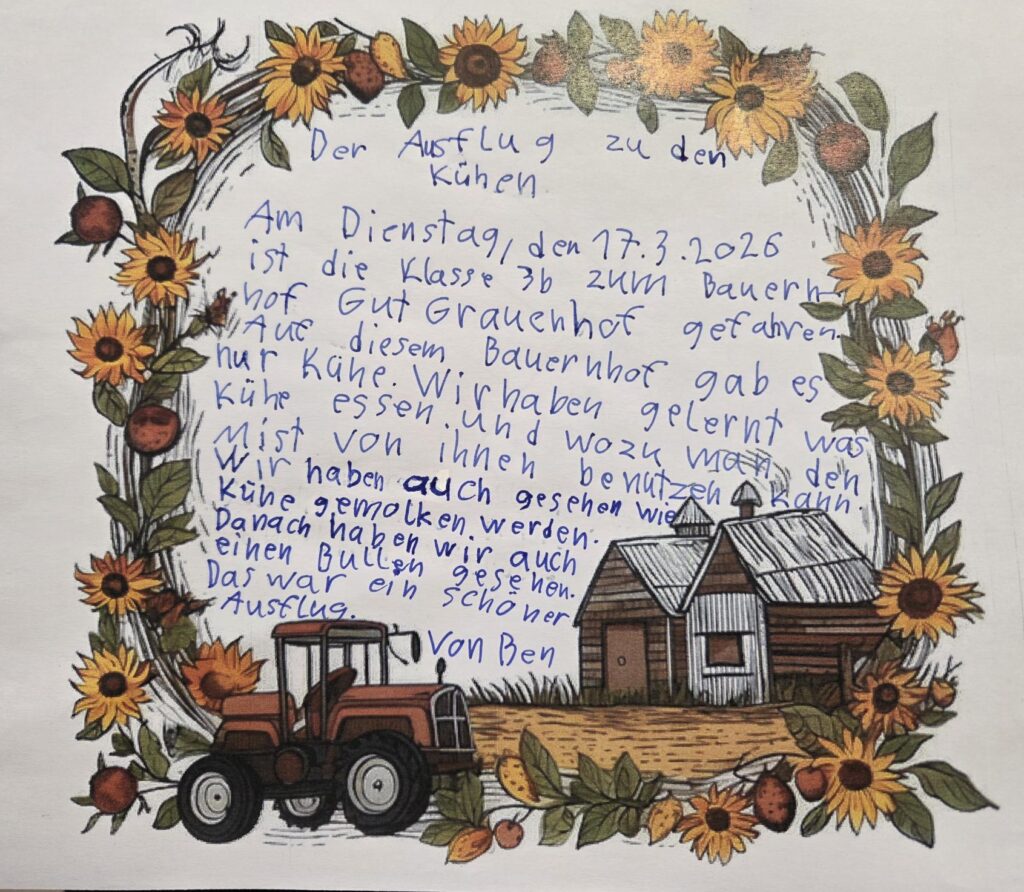 Der Ausflug zu den
Kühen
Am Dienstag, den 17.3.2026
ist die Klasse 3b zum Bauern-
hof Gut Grauenhof gefahren.
Auf diesem Bauernhof gab es
nur Kühe. Wir haben gelernt was
Kühe essen und wozu man den
Mist von ihnen benutzen kann.
Wir haben auch gesehen wie
Kühe gemolken werden.
Danach haben wir auch
einen Bullen gesehen.
Das war ein schöner
Ausflug.
Von Ben